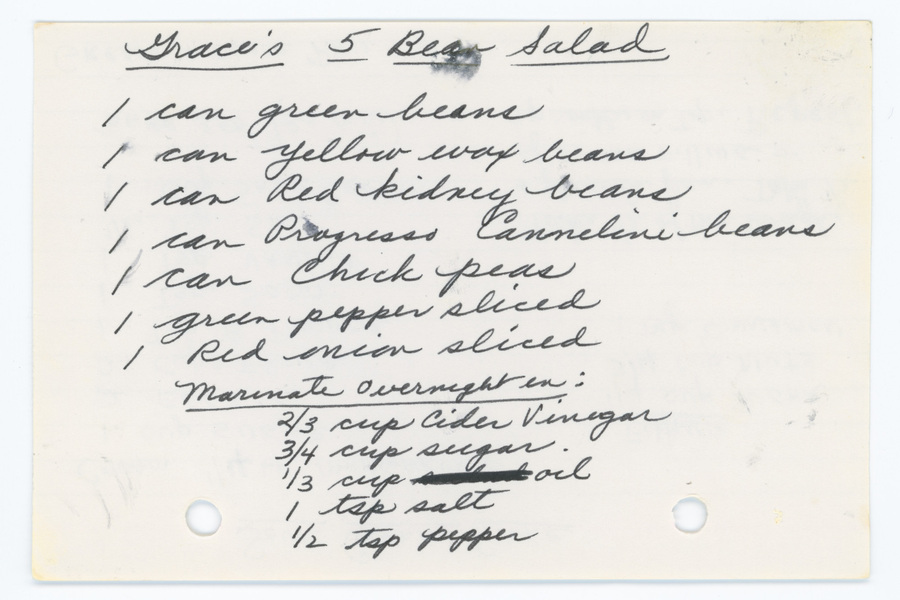 Grace's 5 Bean Salad
1 can green beans
1 can yellow wax beans
1 can Red kidney beans
1 can Progresso Cannelini beans
1 can Chick peas
1 green pepper sliced
1 Red onion sliced
Marinate overnight in:
2/3 cup Cider Vinegar
3/4 cup sugar.
1/3 cup oil
1 tsp salt
1/2 tsp pepper